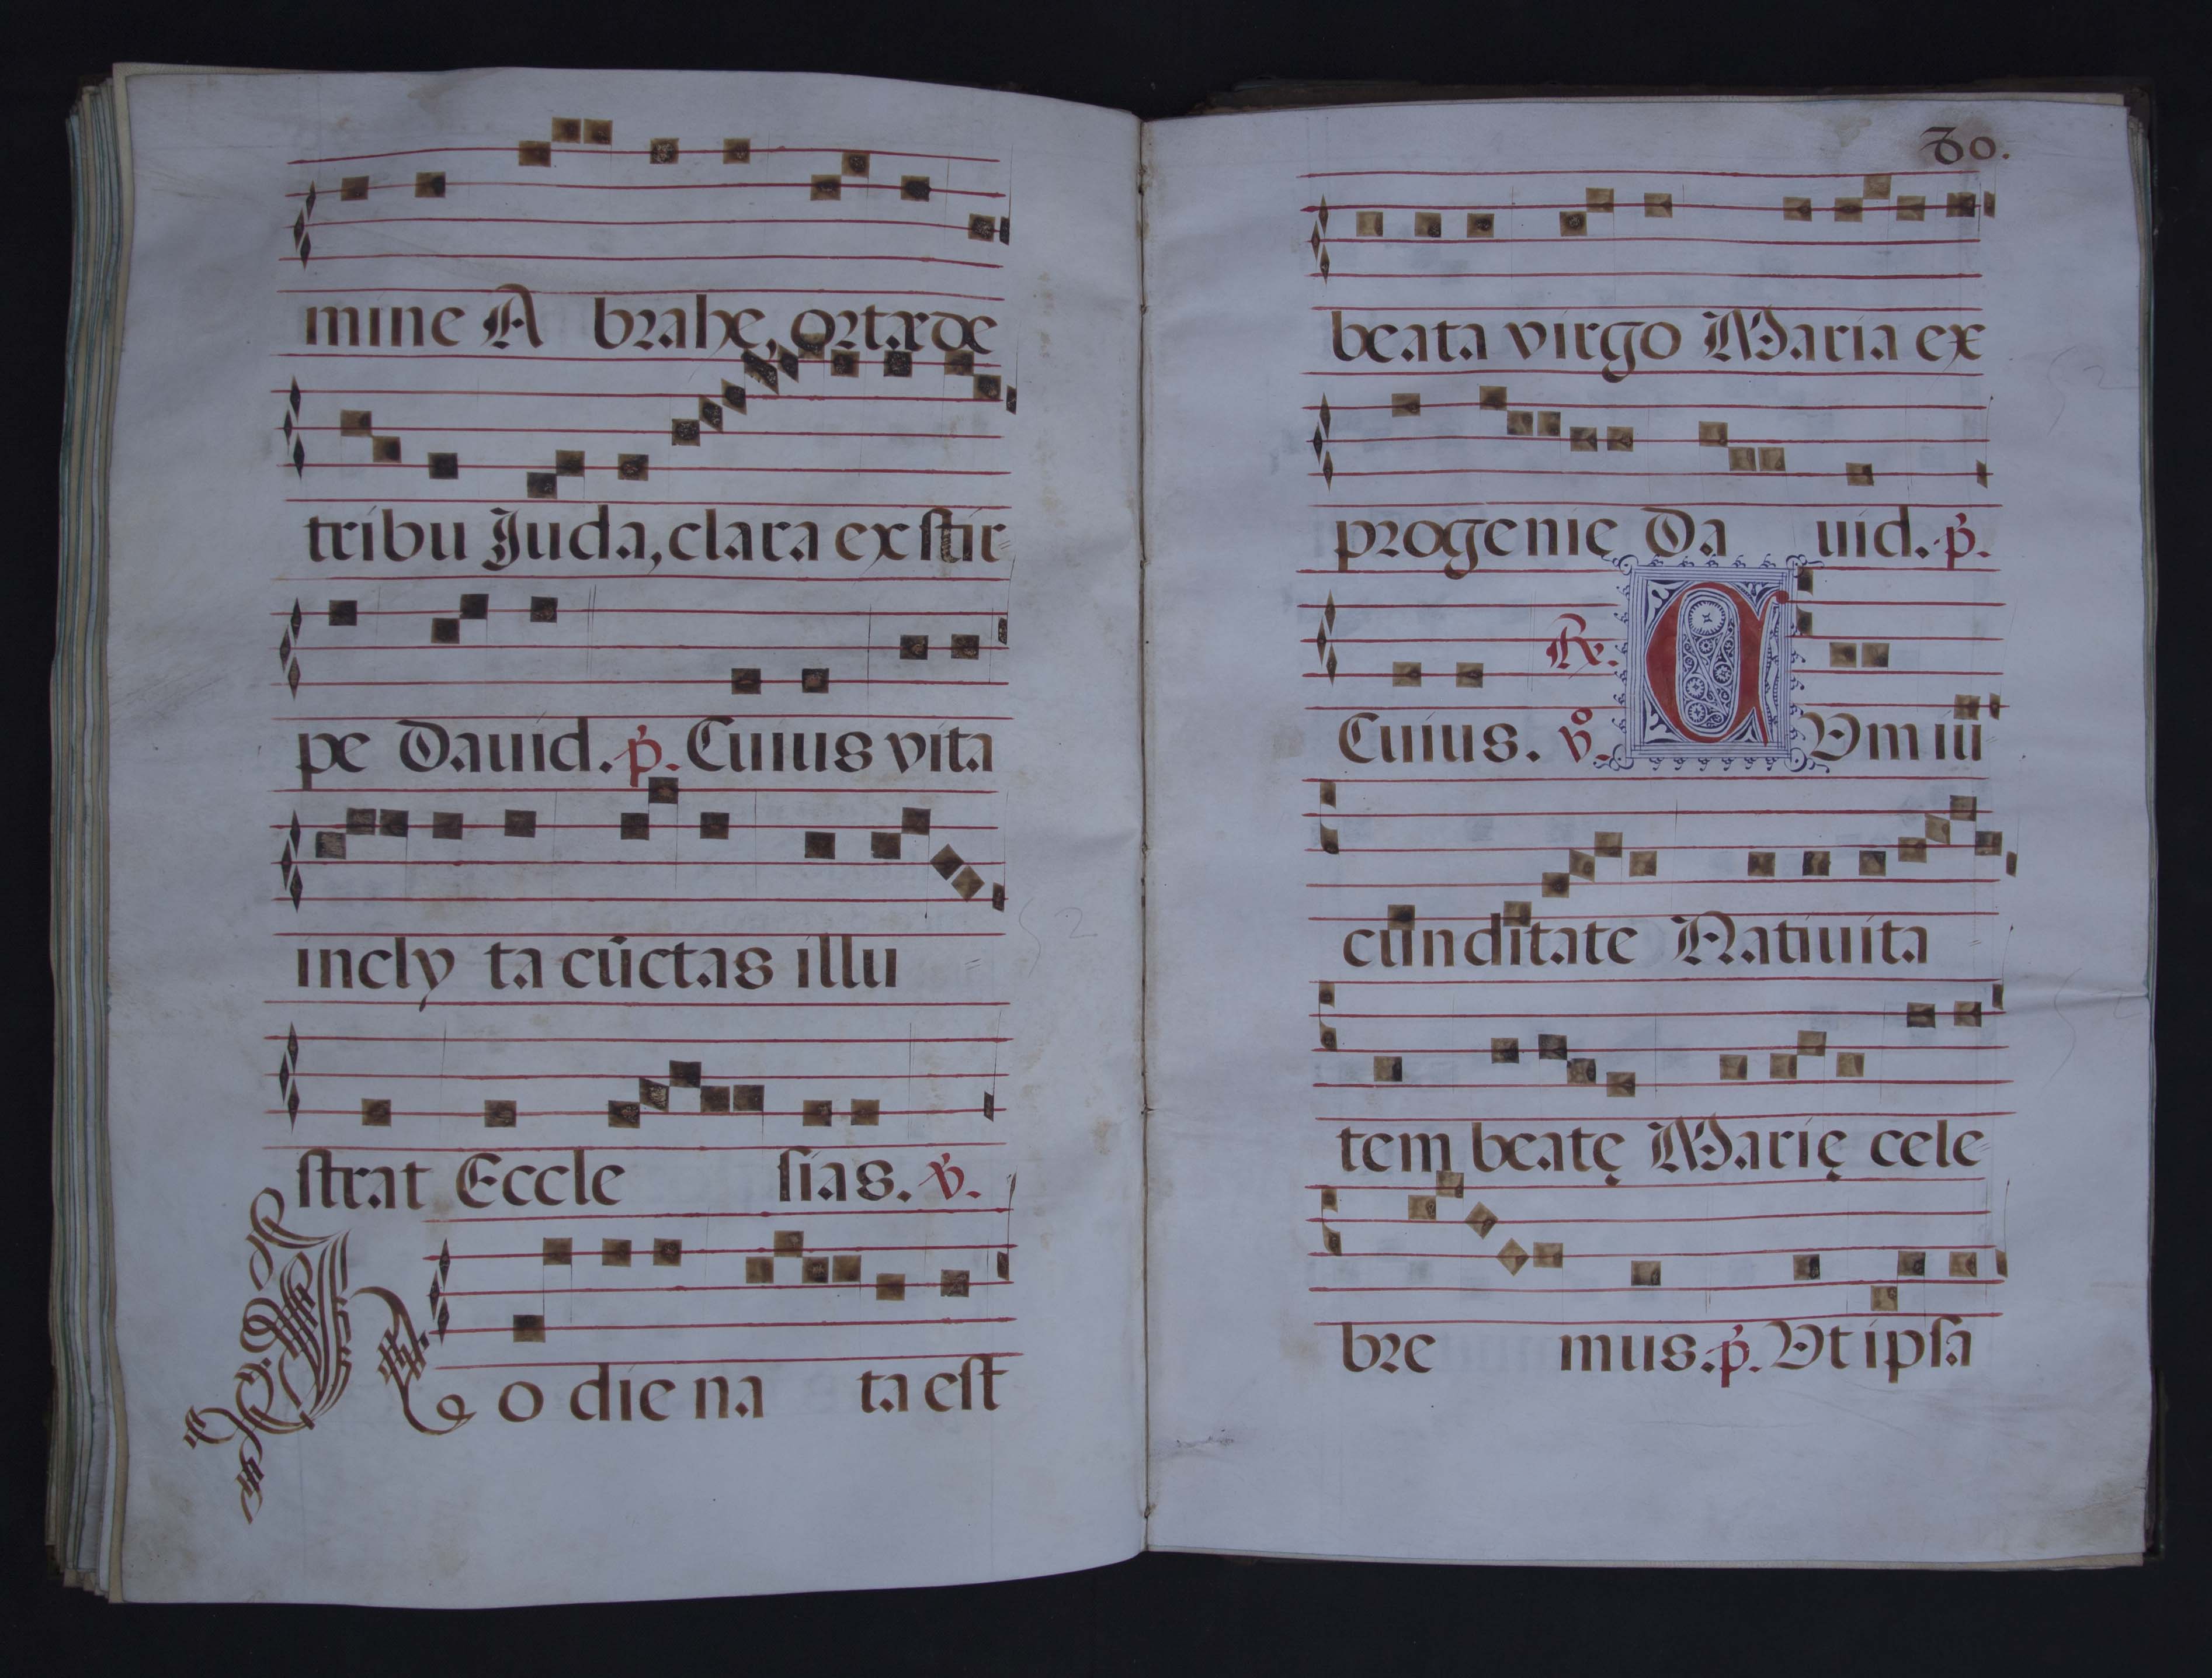 mine A brahę, ortę de
tribu Juda, clara ex stir
pe Dauid. p. Cuius vita
incly ta cūctas illu
strat Eccle sias. v.
H o die na ta est
30.
beata virgo Maria ex
progenie Da uid. p.
Cuius. v. R. CVm iu
cunditate Natiuita
tem beatę Marię cele
bre mus. p. Vt ipsa